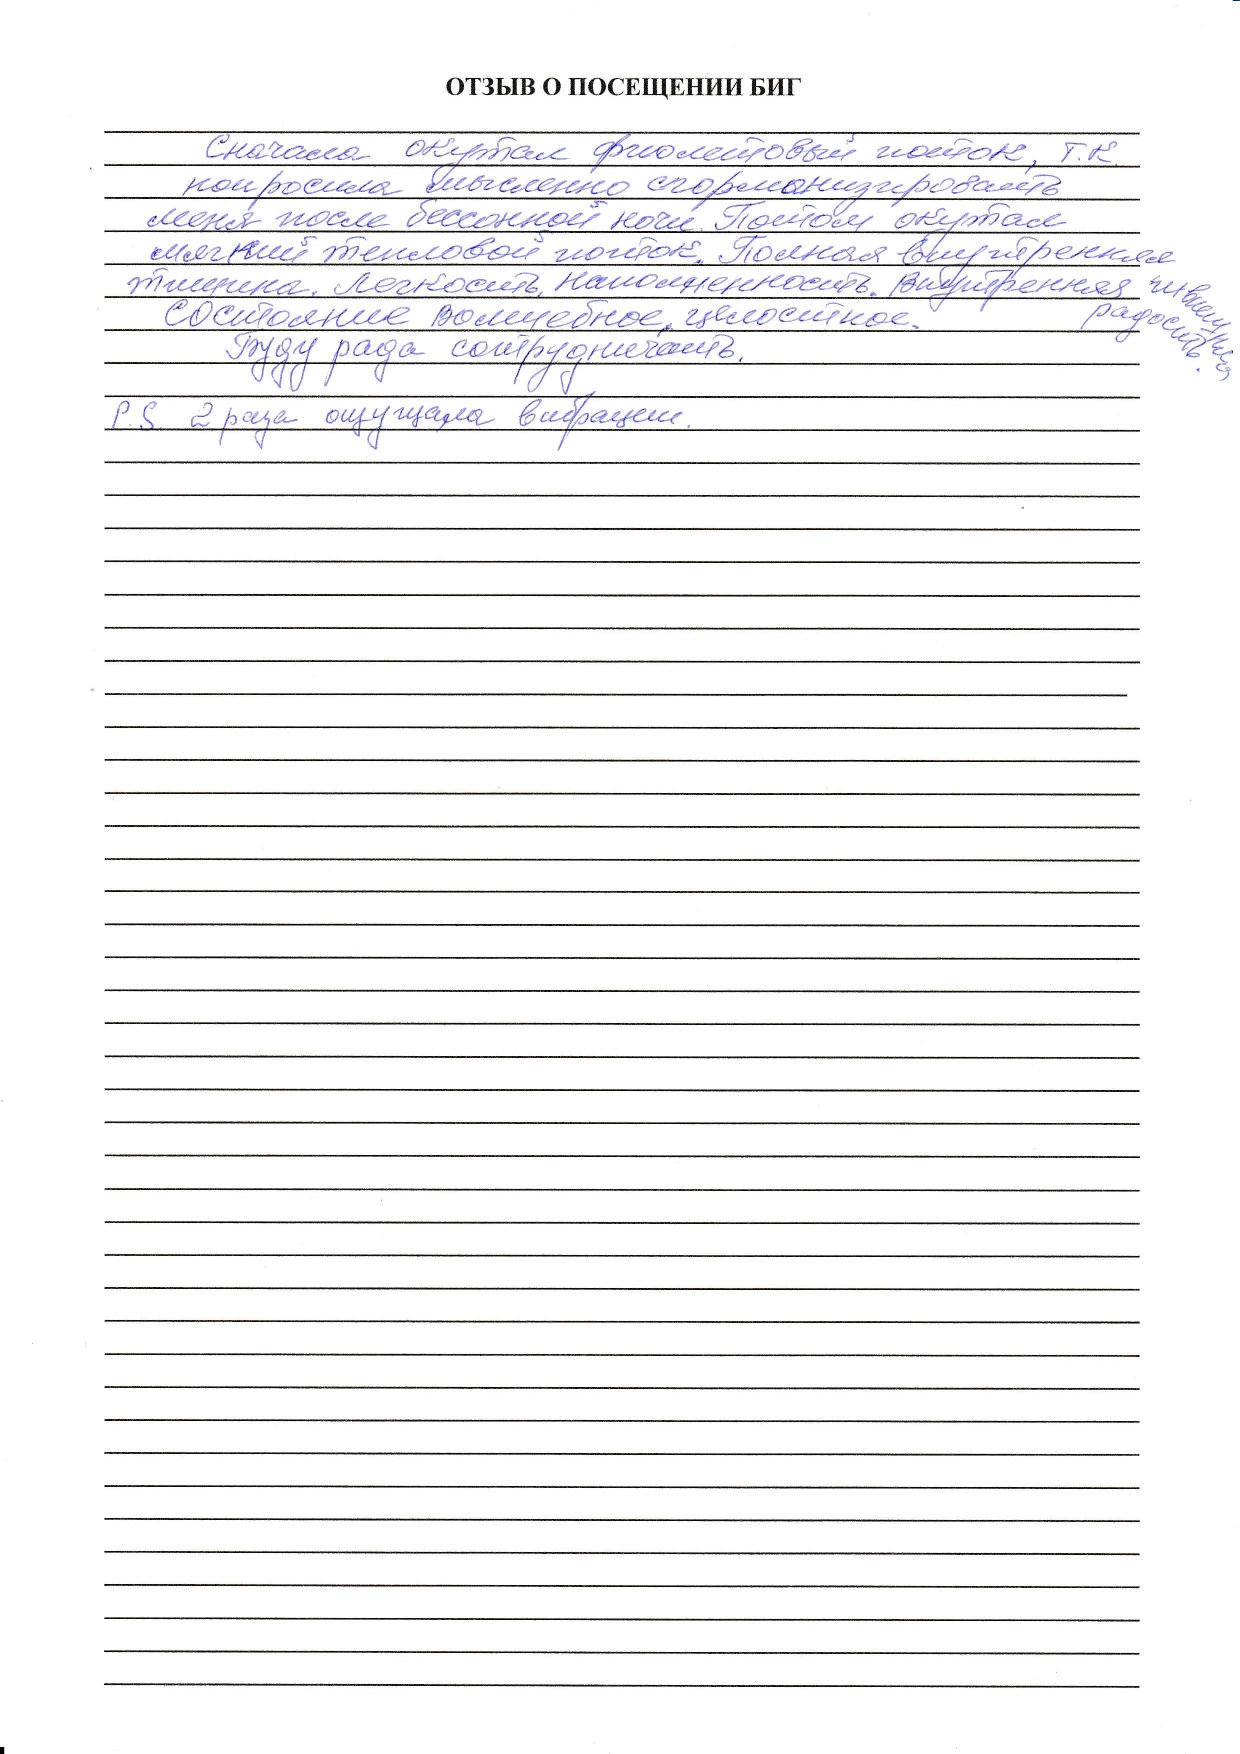 ОТЗЫВ О ПОСЕЩЕНИИ БИГ
Сначала окутал фиолетовый поток, т.к.
попросила мысленно сгормонизировать
меня после бессонной ночи. Потом окутал
мягкий тепловой поток. Полная внутренняя
тишина. Легкость. Наполненность. Внутренняя и внешняя
радость.
Состояние волшебное, целостное.
Буду рада сотрудничать.
P.S 2 раза ощущала вибрации.